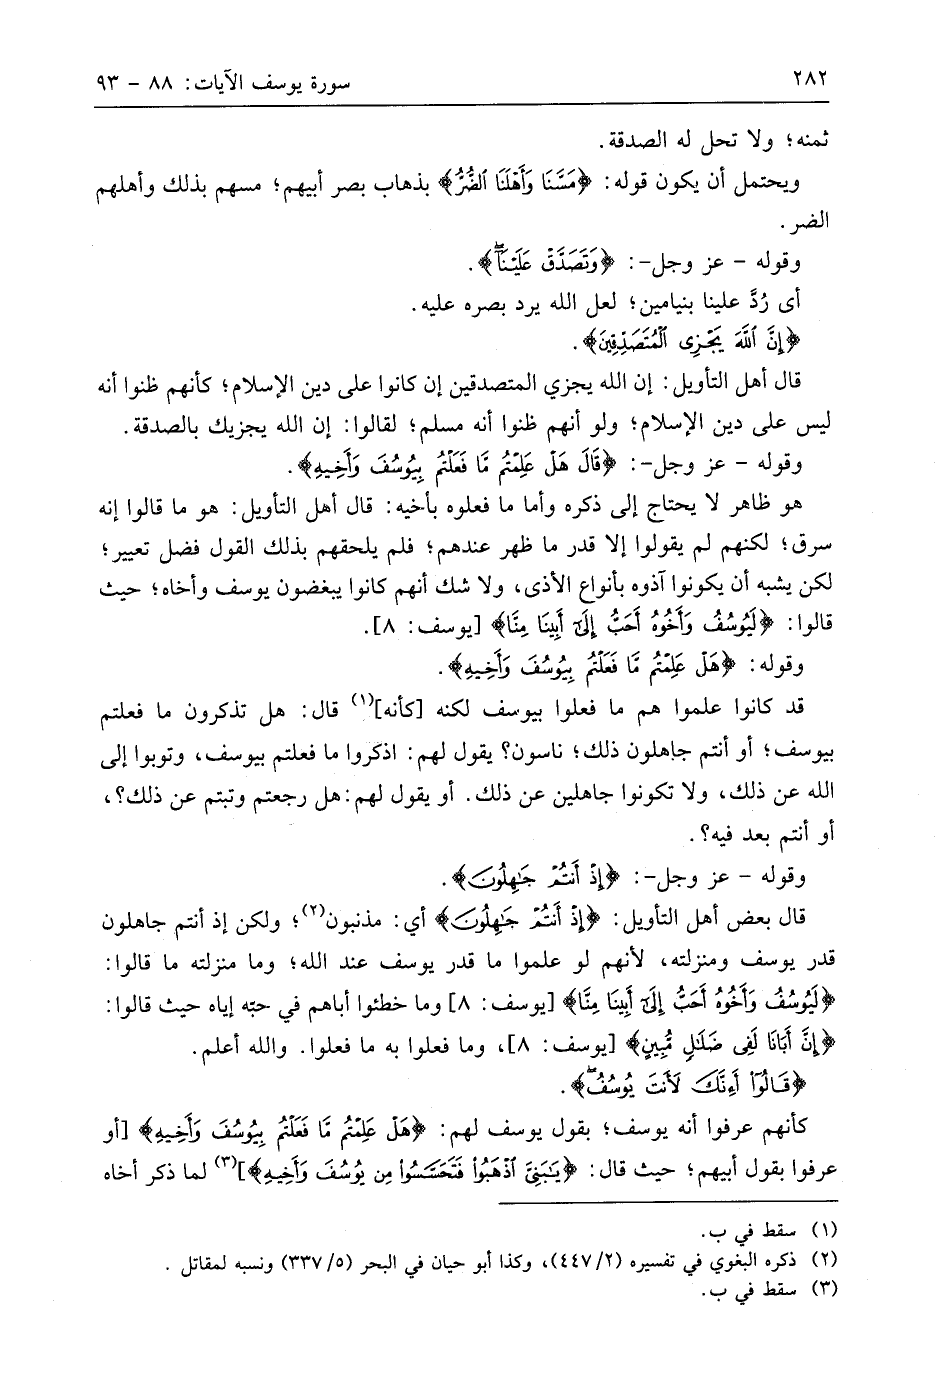 ٢٨٢ سورة يوسف الآيات: ٨٨ - ٩٣
ثمنه؛ ولا تحل له الصدقة.
ويحتمل أن يكون قوله: ﴿مَسَّنَا وَأَهْلَنَا ٱلضُّرُّ﴾ بذهاب بصر أبيهم؛ مسهم بذلك وأهلهم
الضر.
وقوله - عز وجل-: ﴿وَتَصَدَّقْ عَلَيْنَآۖ﴾.
أى رُدَّ علينا بنيامين؛ لعل الله يرد بصره عليه.
﴿إِنَّ ٱللَّهَ يَجْزِى ٱلْمُتَصَدِّقِينَ﴾.
قال أهل التأويل: إن الله يجزي المتصدقين إن كانوا على دين الإسلام؛ كأنهم ظنوا أنه
ليس على دين الإسلام؛ ولو أنهم ظنوا أنه مسلم؛ لقالوا: إن الله يجزيك بالصدقة.
وقوله - عز وجل-: ﴿قَالَ هَلْ عَلِمْتُم مَّا فَعَلْتُم بِيُوسُفَ وَأَخِيهِ﴾.
هو ظاهر لا يحتاج إلى ذكره وأما ما فعلوه بأخيه: قال أهل التأويل: هو ما قالوا إنه
سرق؛ لكنهم لم يقولوا إلا قدر ما ظهر عندهم؛ فلم يلحقهم بذلك القول فضل تعيير؛
لكن يشبه أن يكونوا آذوه بأنواع الأذى، ولا شك أنهم كانوا يبغضون يوسف وأخاه؛ حيث
قالوا: ﴿لَيُوسُفُ وَأَخُوهُ أَحَبُّ إِلَىٰٓ أَبِينَا مِنَّا﴾ [يوسف: ٨].
وقوله: ﴿هَلْ عَلِمْتُم مَّا فَعَلْتُم بِيُوسُفَ وَأَخِيهِ﴾.
قد كانوا علموا هم ما فعلوا بيوسف لكنه [كأنه](١) قال: هل تذكرون ما فعلتم
بيوسف؛ أو أنتم جاهلون ذلك؛ ناسون؟ يقول لهم: اذكروا ما فعلتم بيوسف، وتوبوا إلى
الله عن ذلك، ولا تكونوا جاهلين عن ذلك. أو يقول لهم:هل رجعتم وتبتم عن ذلك؟،
أو أنتم بعد فيه؟.
وقوله - عز وجل-: ﴿إِذْ أَنتُمْ جَٰهِلُونَ﴾.
قال بعض أهل التأويل: ﴿إِذْ أَنتُمْ جَٰهِلُونَ﴾ أي: مذنبون(٢)؛ ولكن إذ أنتم جاهلون
قدر يوسف ومنزلته، لأنهم لو علموا ما قدر يوسف عند الله؛ وما منزلته ما قالوا:
﴿لَيُوسُفُ وَأَخُوهُ أَحَبُّ إِلَىٰٓ أَبِينَا مِنَّا﴾ [يوسف: ٨] وما خطئوا أباهم في حبّه إياه حيث قالوا:
﴿إِنَّ أَبَانَا لَفِى ضَلَٰلٍ مُّبِينٍ﴾ [يوسف: ٨]، وما فعلوا به ما فعلوا. والله أعلم.
﴿قَالُوٓا۟ أَءِنَّكَ لَأَنتَ يُوسُفُۖ﴾.
كأنهم عرفوا أنه يوسف؛ بقول يوسف لهم: ﴿هَلْ عَلِمْتُم مَّا فَعَلْتُم بِيُوسُفَ وَأَخِيهِ﴾ [أو
عرفوا بقول أبيهم؛ حيث قال: ﴿يَٰبَنِىَّ ٱذْهَبُوا۟ فَتَحَسَّسُوا۟ مِن يُوسُفَ وَأَخِيهِ﴾](٣) لما ذكر أخاه
(١) سقط في ب.
(٢) ذكره البغوي في تفسيره (٢/ ٤٤٧)، وكذا أبو حيان في البحر (٥/ ٣٣٧) ونسبه لمقاتل .
(٣) سقط في ب.